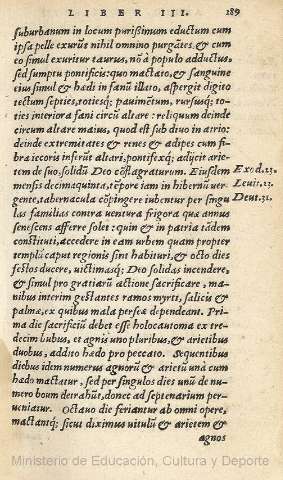 LIBER III. 189
suburbanum in locum purißimum eductum cum
ipsa pelle exurũt nihil omnino purgãtes, & cum
eo simul exuritur taurus, nõ à populo adductus,
sed sumptu pontificis: quo mactato, & sanguine
eius simul & hædi in fanũ illato, aspergit digito
tectum septies, totiesq; pauimẽtum, rursusq; to-
ties interiora fani circũ altare: reliquum deinde
circum altare maius, quod est sub diuo in atrio:
deinde extremitates & renes & adipes cum fi-
bra iecoris inferũt altari, pontifexq; adijcit arie-
tem de suo, solidũ Deo cõflagraturum. Eiusdem
mensis decimaquinta, tẽpore iam in hibernũ uer
gente, tabernacula cõpingere iubentur per singu
las familias contra uentura frigora quæ annus
senescens afferre solet: quin & in patria tãdem
constituti, accedere in eam urbem quam propter
templũ caput regionis sint habituri, & octo dies
festos ducere, uictimasq; Deo solidas incendere,
& simul pro gratiarũ actione sacrificare, ma-
nibus interim gestantes ramos myrti, salicis &
palmæ, ex quibus mala perseæ dependeant. Pri-
ma die sacrificiũ debet esse holocautoma ex tre-
decim bubus, et agnis uno pluribus, & arietibus
duobus, addito hædo pro peccato. Sequentibus
diebus idem numerus agnorũ & arietũ unà cum
hædo mactatur, sed per singulos dies unũ de nu-
mero boum detrahũt, donec ad septenarium per-
ueniatur. Octauo die feriantur ab omni opere,
mactantq; sicut diximus uitulũ & arietem &
agnos
Exod.23.
Leuit.23.
Deut.31.
Ministerio de Educación, Cultura y Deporte